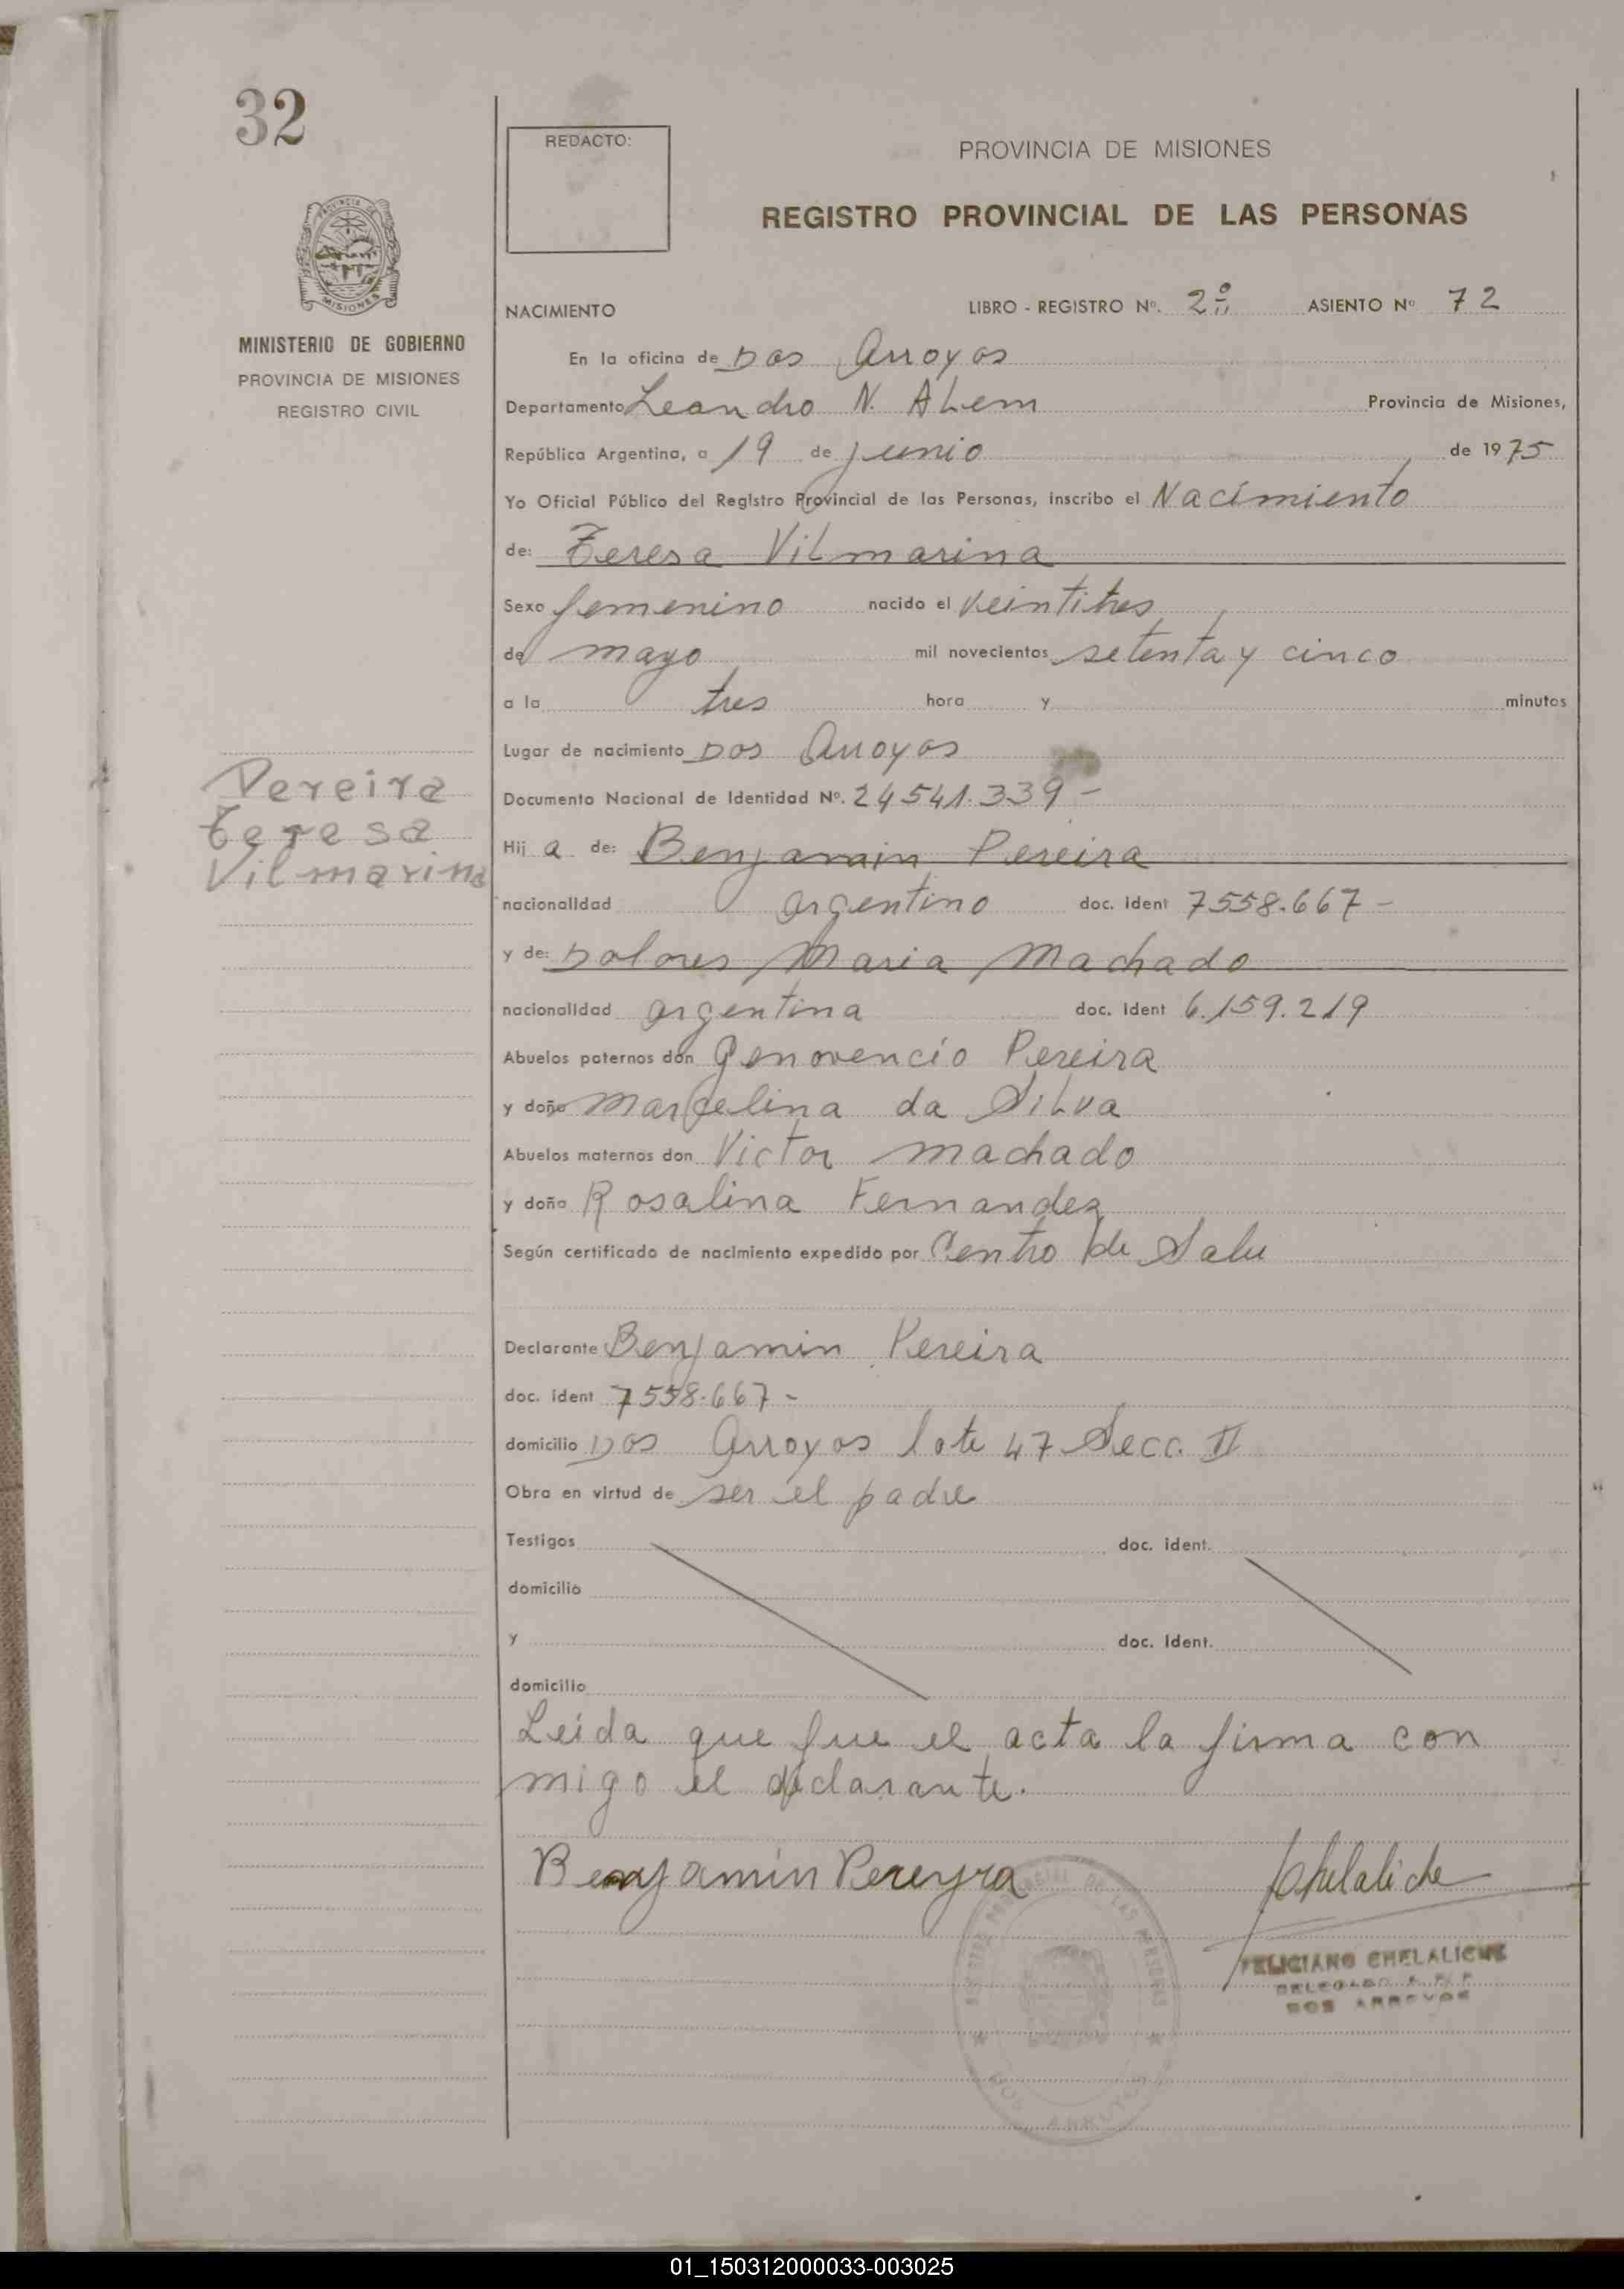 32
REDACTO:
PROVINCIA DE MISIONES
REGISTRO PROVINCIAL DE LAS PERSONAS
PROVINCIA DE
MISIONES
MINISTERIO DE GOBIERNO
PROVINCIA DE MISIONES
REGISTRO CIVIL
NACIMIENTO LIBRO - REGISTRO Nº. 2º ASIENTO Nº 72
En la oficina de Dos Arroyos
Departamento Leandro N. Alem Provincia de Misiones,
República Argentina, a 19 de junio de 1975
Yo Oficial Público del Registro Provincial de las Personas, inscribo el Nacimiento
de: Teresa Vilmarina
Sexo femenino nacido el veintitres
de mayo mil novecientos setenta y cinco
a la tres hora y minutos
Lugar de nacimiento Dos Arroyos
Documento Nacional de Identidad Nº. 24541.339-
Pereira
Teresa
Vilmarina
Hij a de: Benjamin Pereira
nacionalidad argentino doc. ident 7558.667-
y de: Dolores Maria Machado
nacionalidad argentina doc. ident 6.159.219
Abuelos paternos don Genovencio Pereira
y doña Marcelina da Silva
Abuelos maternos don Victor Machado
y doña Rosalina Fernandez
Según certificado de nacimiento expedido por Centro de Salu
Declarante Benjamin Pereira
doc. ident 7558.667-
domicilio Dos Arroyos lote 47 Secc. II
Obra en virtud de ser el padre
Testigos doc. ident.
domicilio
y doc. ident.
domicilio
Leida que fue el acta la firma con
migo el declarante.
Benjamin Pereyra Chelaliche
REGISTRO PROVINCIAL DE LAS PERSONAS
DOS ARROYOS
FELICIANO CHELALICHE
DELEGADO R. P. P.
DOS ARROYOS
01_150312000033-003025